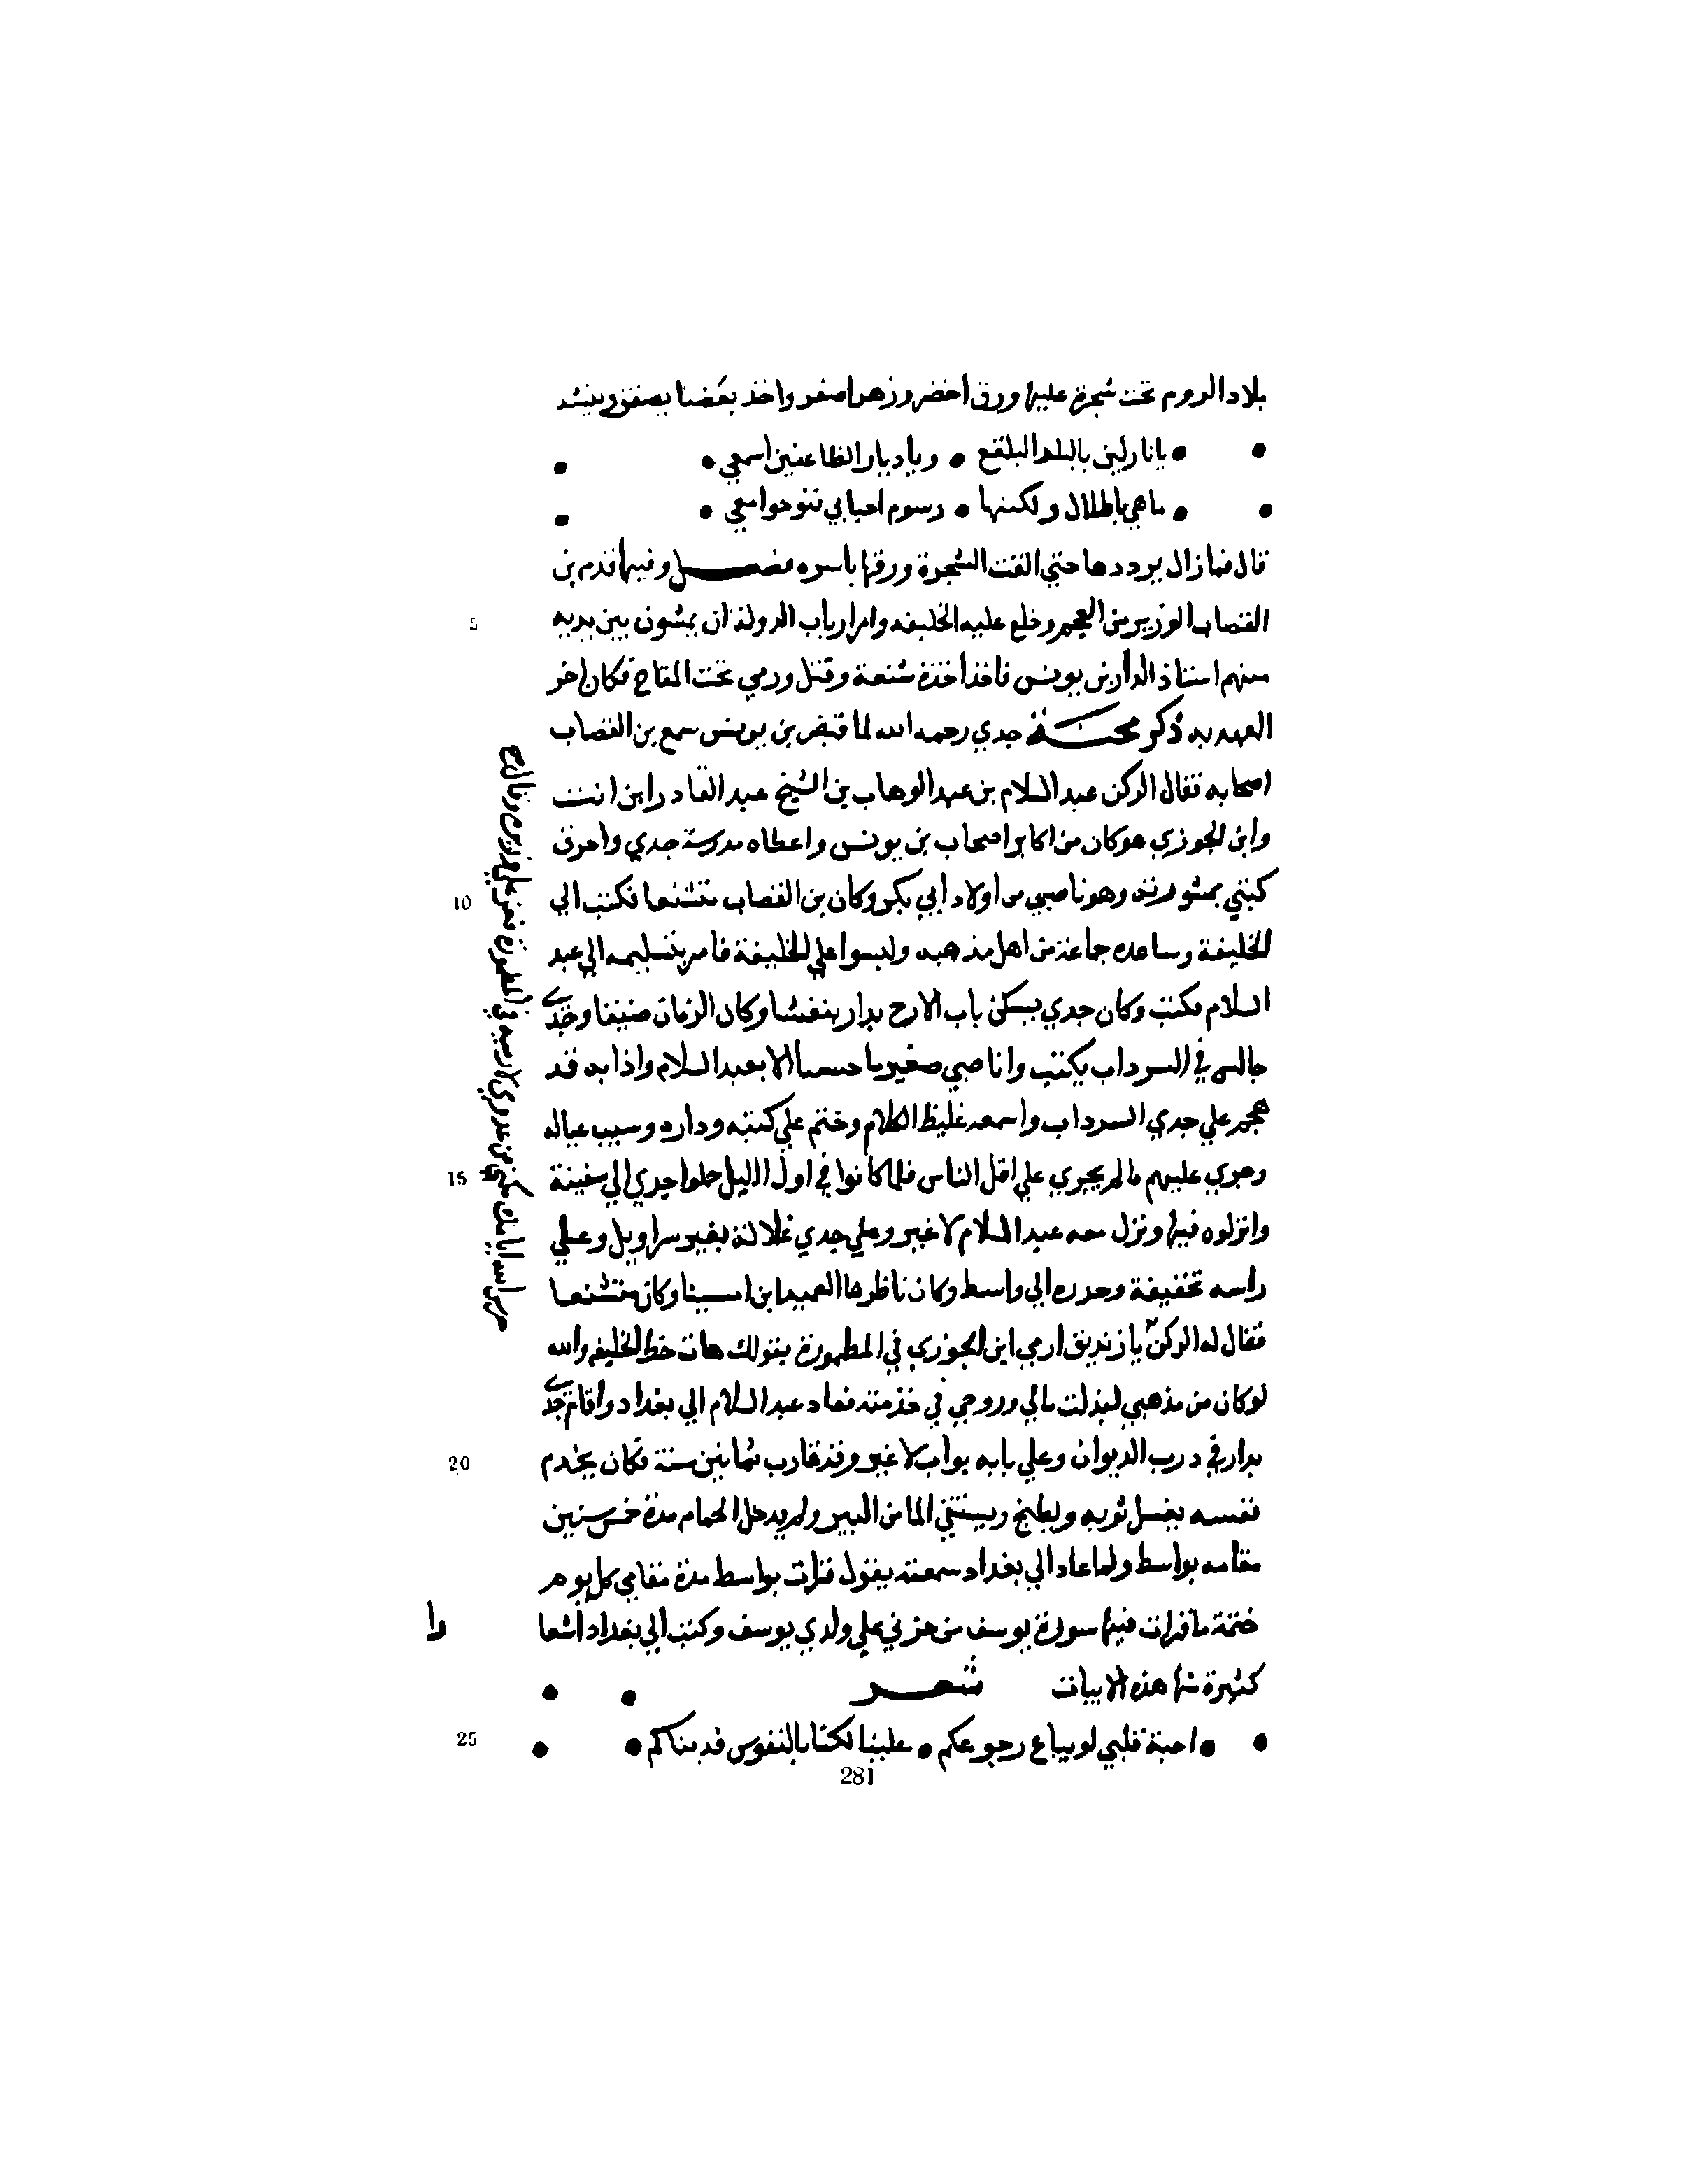 بلاد الروم تحت شجرة عليها ورق اخضر وزهر اصفر واخذ بعضنا يصفق وينشد
• • يا نازلين بالبلد البلقع • ويا ديار الظاعنين اسمعي • •
• • ما هي باطلال ولكنها • رسوم احبابي تنوحوا معي • •
قال فما زال يرددها حتي القت الشجرة ورقها باسره فصل وفيها قدم بن
5 القصاب الوزير من العجم وخلع عليه الخليفه وامر ارباب الدولة ان يمشون بين يديه
منهم استاذ الدار بن يونس فاخذ اخذة شنعة وقتل ورمي تحت التاج فكان اخر
العهد به ذكر محنة جدي رحمه الله لما قبض بن يونس سمع بن القصاب
اصحابه فقال الركن عبد السلام بن عبد الوهاب بن الشيخ عبد القادر اين انت
وابن الجوزي هو كان من اكابر اصحاب بن يونس واعطاه مدرسة جدي واحرق
10 كتبي بمشورته وهو ناصبي من اولاد ابي بكر وكان بن القصاب متشنعا فكتب الي
الخليفة وساعده جماعة من اهل مذهبه ولبسوا علي الخليفة فامر بتسليمه الي عبد
السلام فكتب وكان جدي يسكن باب الازج بدار بنفشا وكان الزمان صيفا وجدي
جالس في السرداب يكتب وانا صبي صغير ما حسسنا الا بعبد السلام واذا به قد
هجم علي جدي السرداب واسمعه غليظ الكلام وختم علي كتبه وداره وسبب عياله
15 وجري عليهم ما لم يجري علي اقل الناس فلما كانوا في اول الليل حملوا جدي الي سفينة
وانزلوه فيها ونزل معه عبد السلام لا غير وعلي جدي غلالة بغير سراويل وعلي
راسه تخفيفة وحدره الي واسط وكان ناظرها العميد ابن امسينا وكان متشنعا
فقال له الركن يا زنديق ارمي ابن الجوزي في المطمورة بقولك هات خط الخليفه والله
لو كان من مذهبي لبذلت مالي وروحي في خذمته فعاد عبد السلام الي بغداد واقام جدي
20 بدار في درب الديوان وعلي بابه بواب لا غير وقد قارب ثمانين سنة فكان يخدم
نفسه يغسل ثوبه ويطبخ ويستقي الما من البير ولم يدخل الحمام مدة خمس سنين
مقامه بواسط ولما عاد الي بغداد سمعته يقول قرات بواسط مدة مقامي كل يوم
ختمة ما قرات فيها سورة يوسف من حزني علي ولدي يوسف وكتب الي بغداد اشعا را
كثيرة منها هذه الابيات شعر • •
25 • • احبة قلبي لو يباع رجوعكم • علينا لكنا بالنفوس فديناكم • •
281
مكني من عدوي لارميه في المطمورة فعز علي وزبره وقال